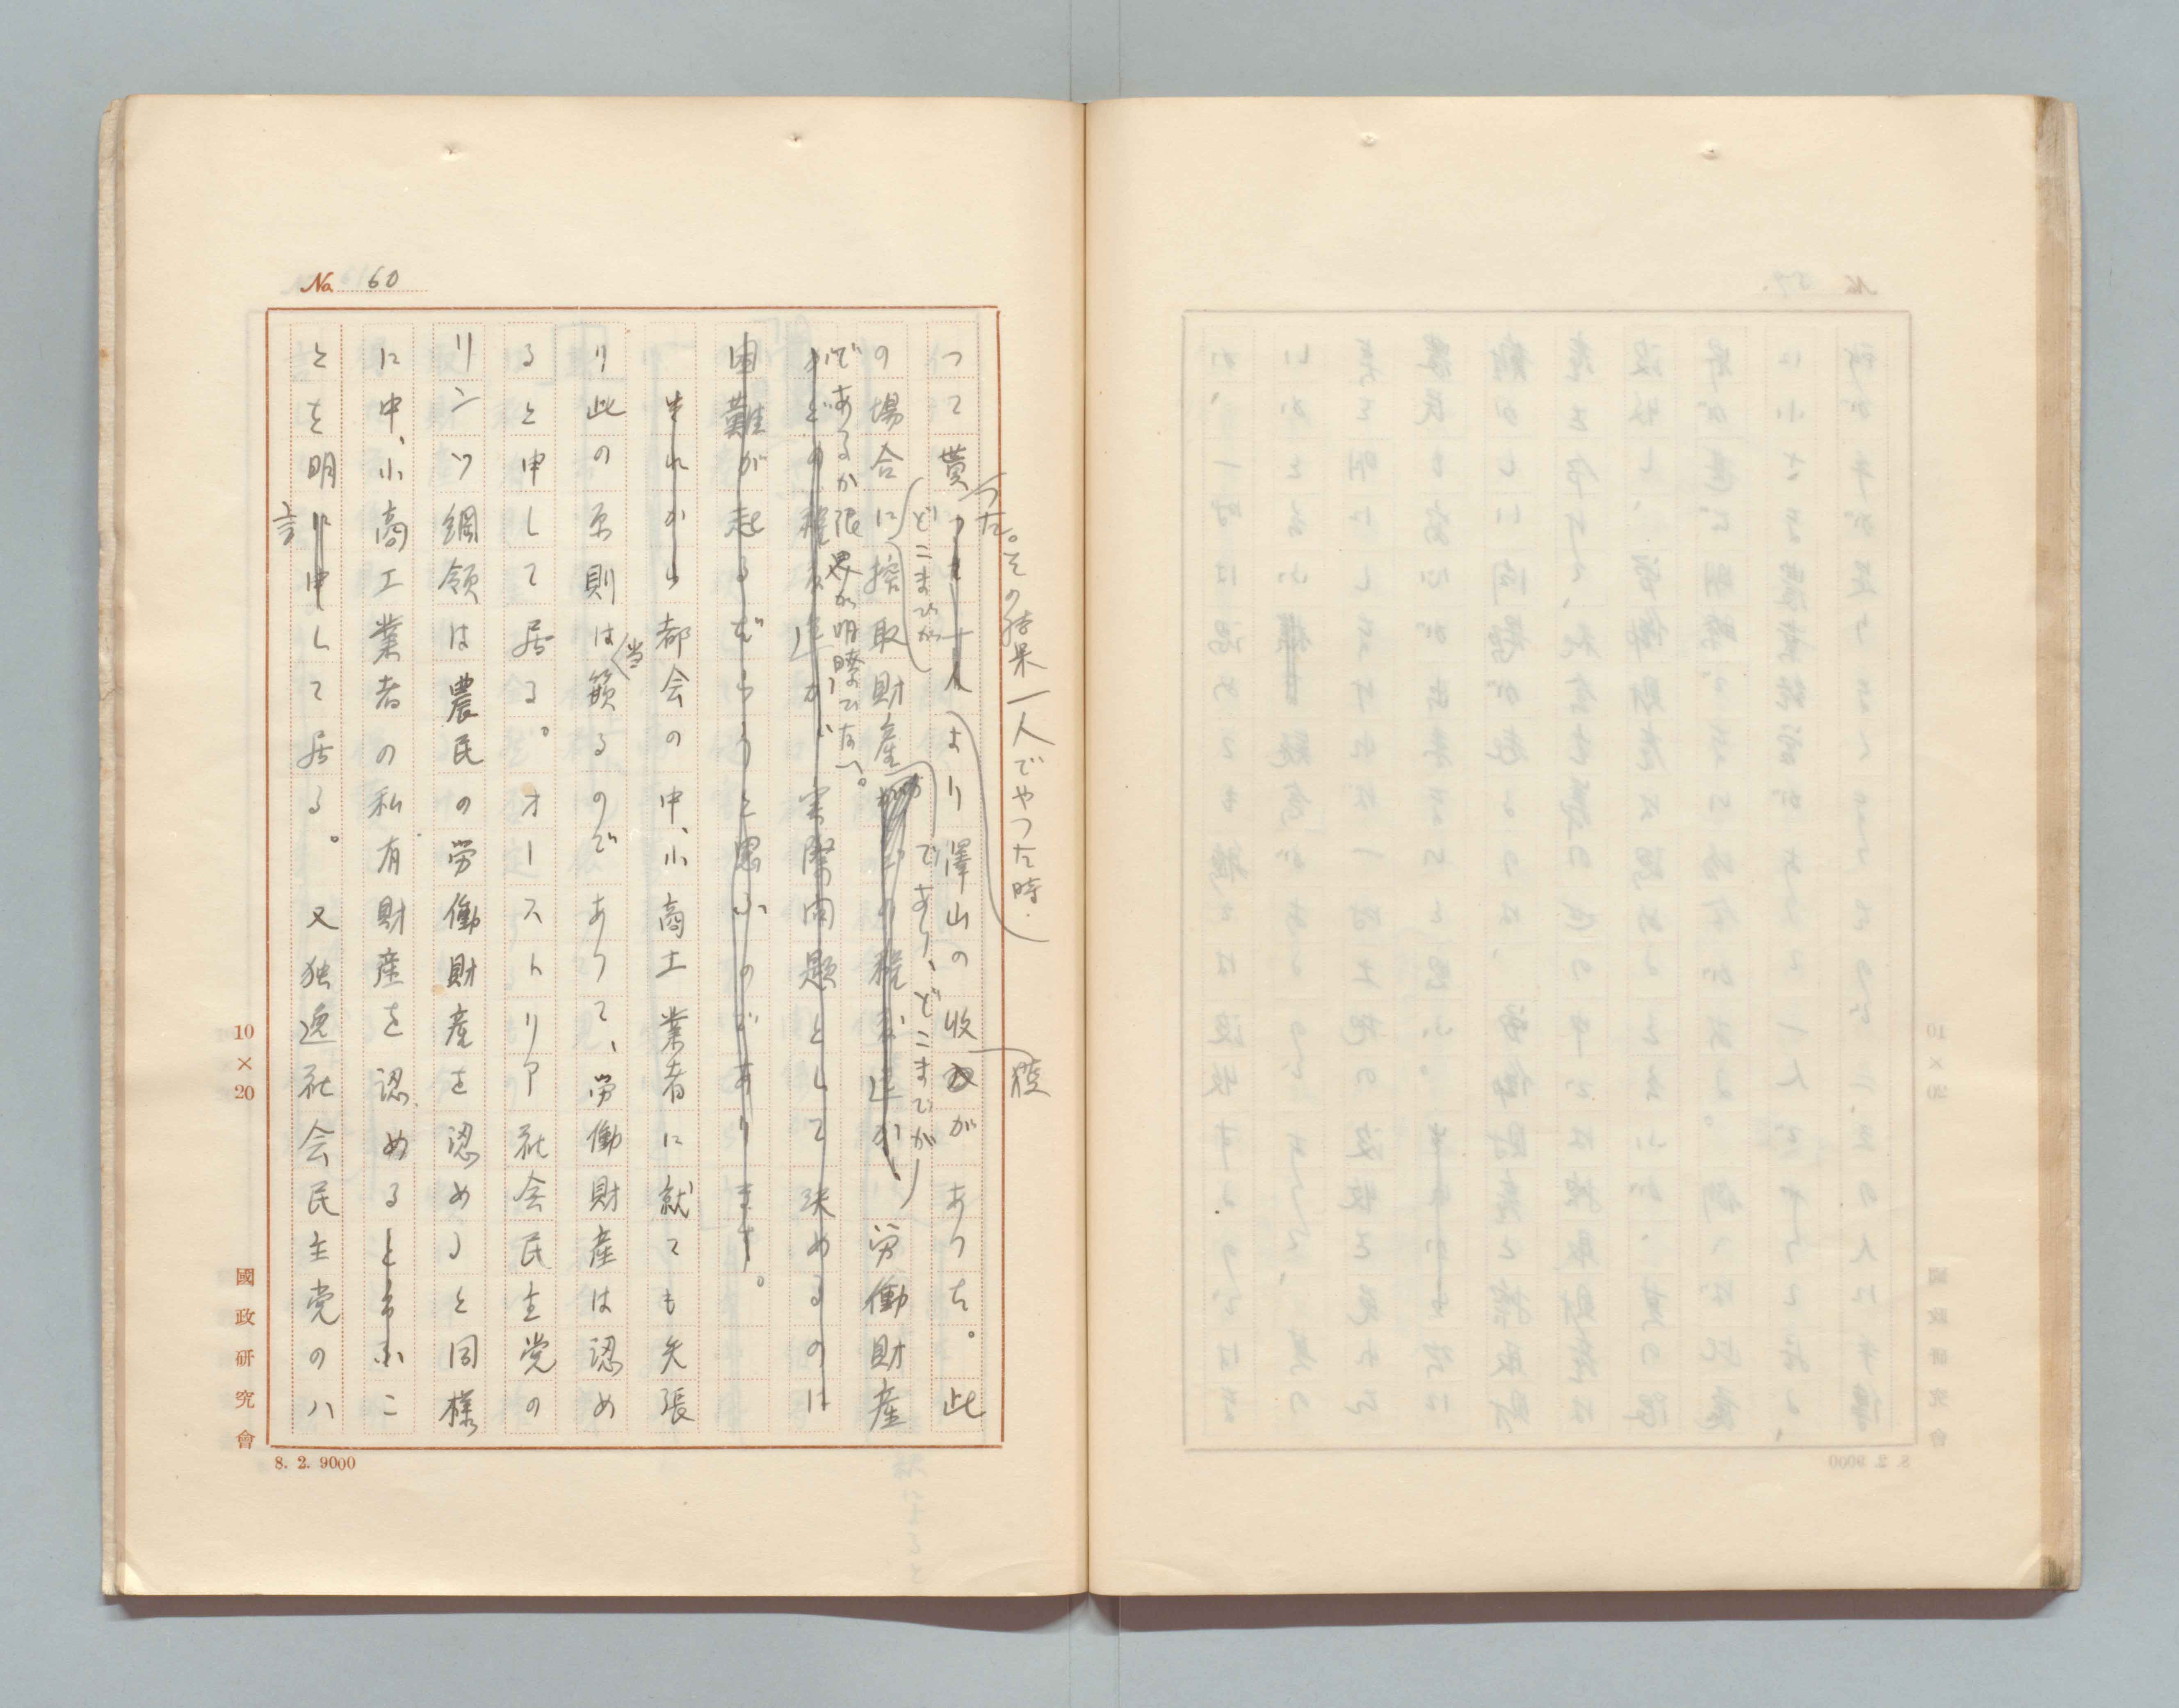 No. 60
つた。その結果一人でやつた時
つて貰つた十人より澤山の收入があつた。此
穫
どこまでが
であり、どこまでが
の場合に搾取財産がどの程度迄か、労働財産
であるか限界が明瞭でない。
がどの程度迄か、実際問題として決めるのに
困難が起るだらうと思ふのであります。
それから都会の中、小商工業者に就ても矢張
り此の原則は籤るのであつて、労働財産は認め
当
ると申して居る。オーストリア社会民主党の
リンツ綱領は農民の労働財産を認めると同様
に中、小商工業者の私有財産を認めると云ふこ
とを明に申して居る。又独逸社会民主党のハ
言
10×20
國政研究會
8. 2. 9000